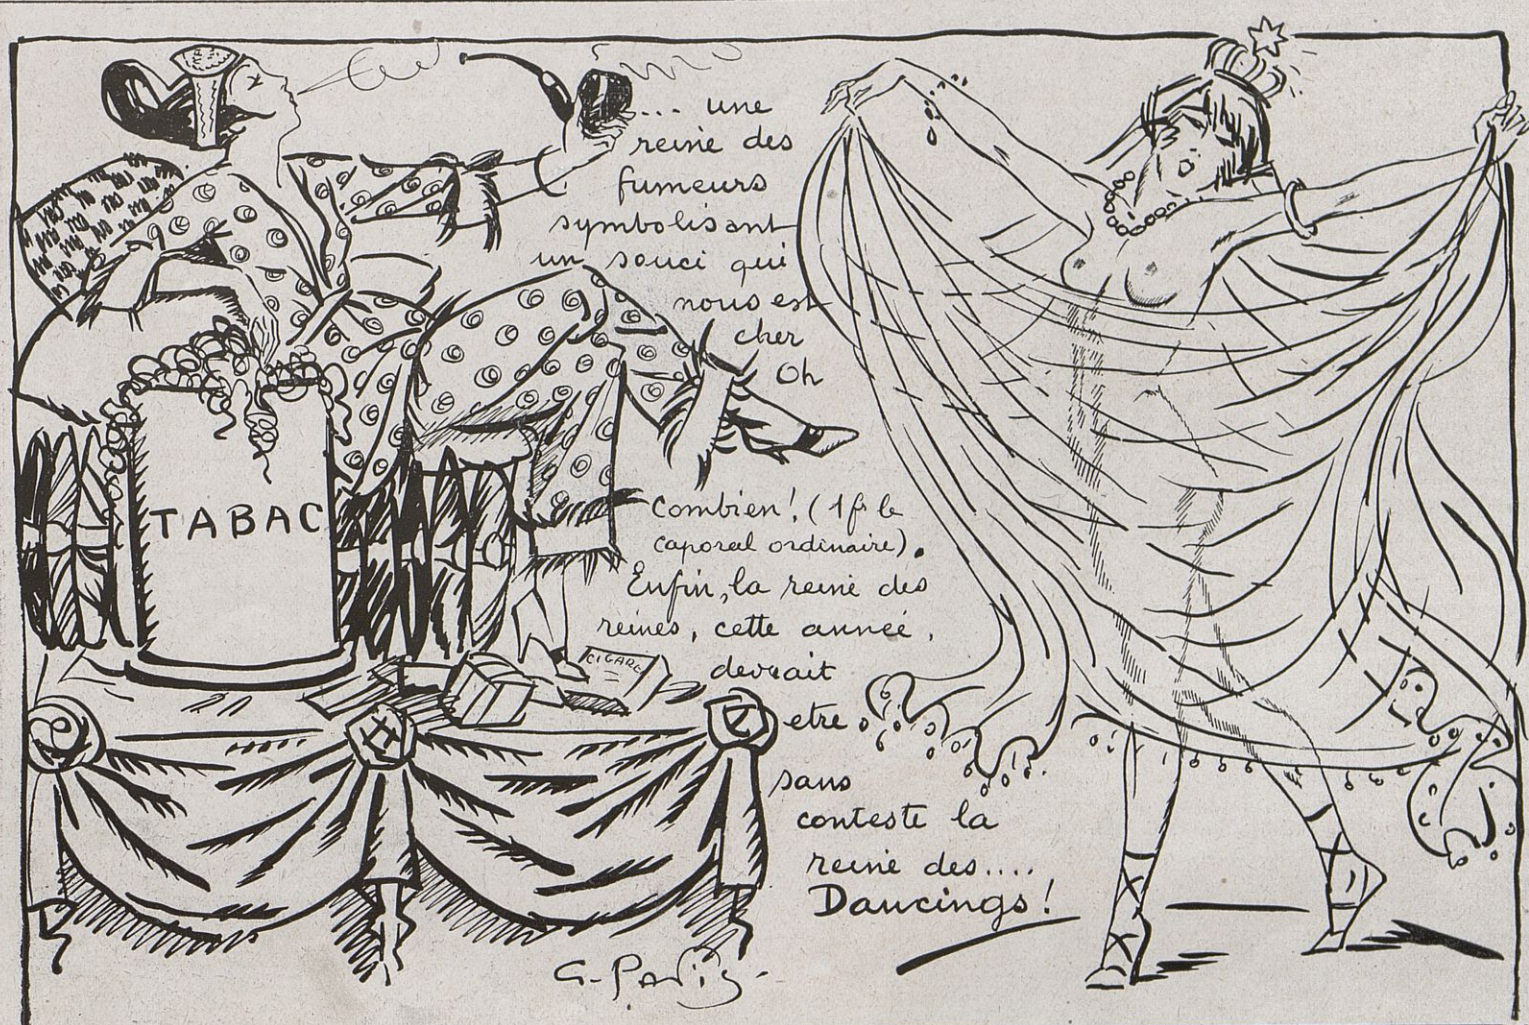 ... une
reine des
fumeurs
symbolisant
un souci qui
nous est
cher
Oh
combien! (1 fr le
caporal ordinaire).
Enfin, la reine des
reines, cette année,
devrait
etre
sans
conteste la
reine des....
Dancings!
TABAC
CIGARE